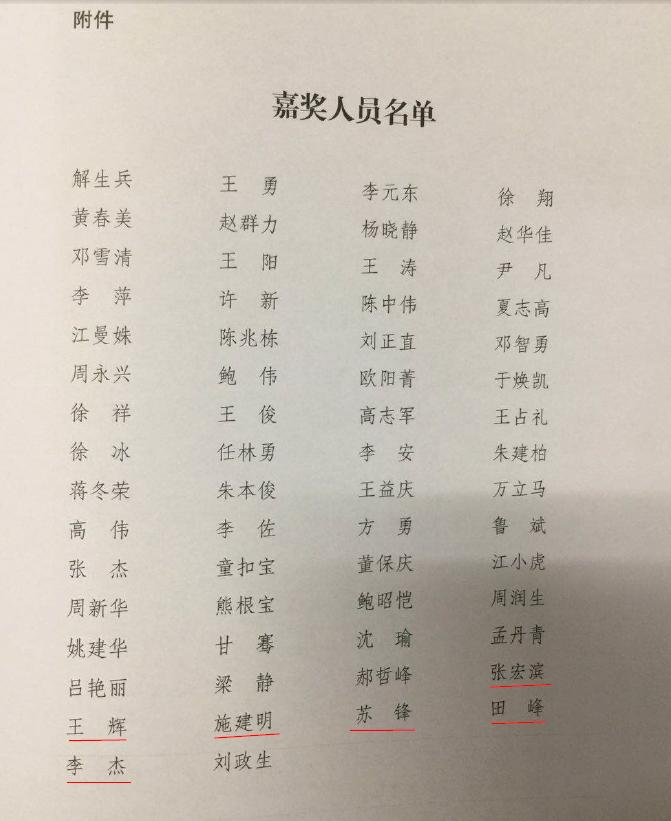 附件
嘉奖人员名单
解生兵 王 勇 李元东 徐 翔
黄春美 赵群力 杨晓静 赵华佳
邓雪清 王 阳 王 涛 尹 凡
李 萍 许 新 陈中伟 夏志高
江曼姝 陈兆栋 刘正直 邓智勇
周永兴 鲍 伟 欧阳菁 于焕凯
徐 祥 王 俊 高志军 王占礼
徐 冰 任林勇 李 安 朱建柏
蒋冬荣 朱本俊 王益庆 万立马
高 伟 李 佐 方 勇 鲁 斌
张 杰 童扣宝 董保庆 江小虎
周新华 熊根宝 鲍昭恺 周润生
姚建华 甘 骞 沈 瑜 孟丹青
吕艳丽 梁 静 郝哲峰 张宏滨
王 辉 施建明 苏 锋 田 峰
李 杰 刘政生